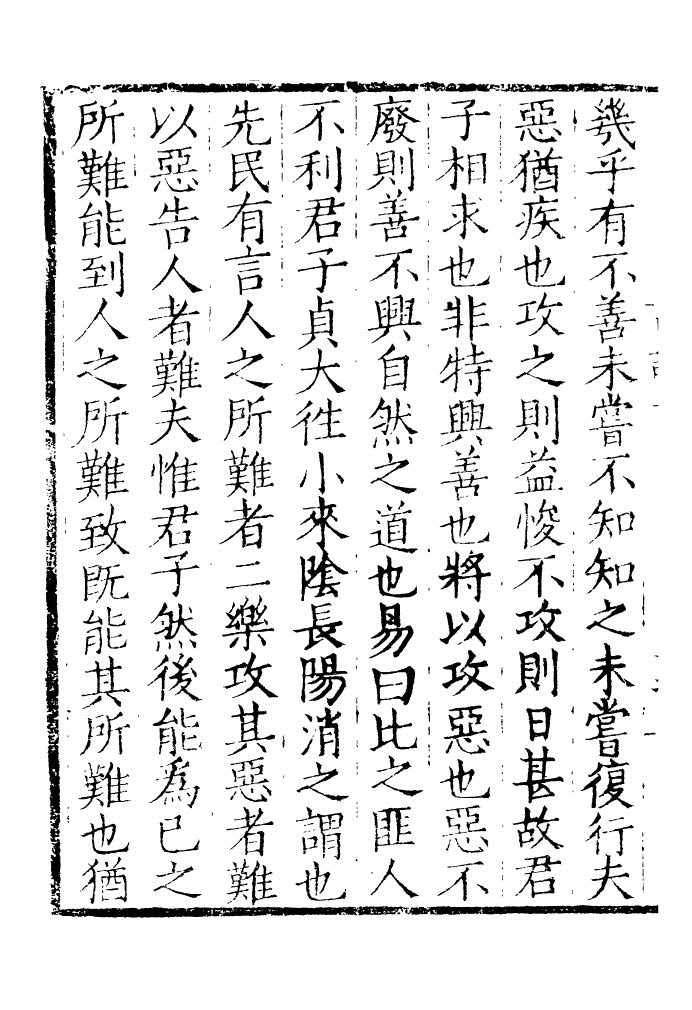 幾乎有不善未嘗不知知之未嘗復行夫
惡猶疾也攻之則益悛不攻則日甚故君
子相求也非特興善也將以攻惡也惡不
廢則善不興自然之道也易曰比之匪人
不利君子貞大徃小來陰長陽消之謂也
先民有言人之所難者二樂攻其惡者難
以惡告人者難夫惟君子然後能爲已之
所難能到人之所難致既能其所難也猶